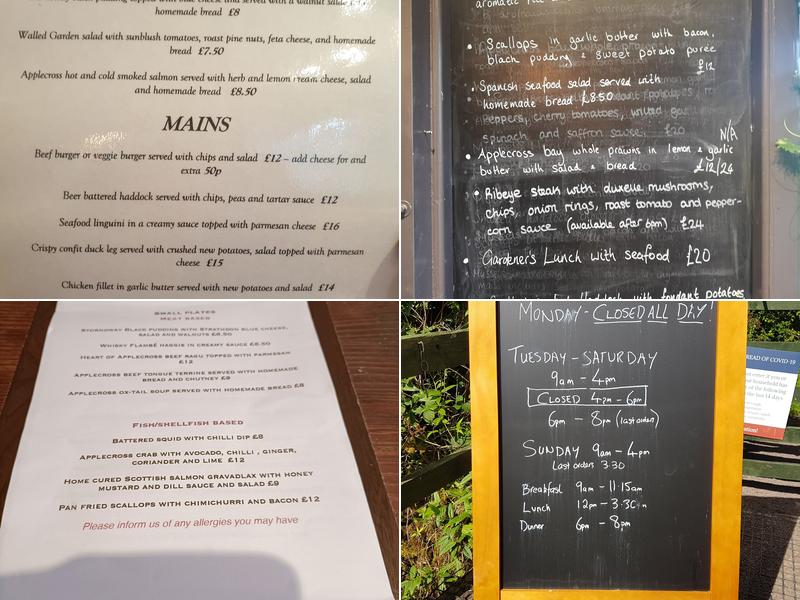 pudding topped with blue cheese and served with a walnut salad
homemade bread £8
Walled Garden salad with sunblush tomatoes, roast pine nuts, feta cheese, and homemade
bread £7.50
Applecross hot and cold smoked salmon served with herb and lemon cream cheese, salad
and homemade bread £8.50
MAINS
Beef burger or veggie burger served with chips and salad £12 – add cheese for and
extra 50p
Beer battered haddock served with chips, peas and tartar sauce £12
Seafood linguini in a creamy sauce topped with parmesan cheese £16
Crispy confit duck leg served with crushed new potatoes, salad topped with parmesan
cheese £15
Chicken fillet in garlic butter served with new potatoes and salad £14
aromatic
• Scallops in garlic butter with bacon,
black pudding & sweet potato purée
£12
• Spanish seafood salad served with
homemade bread £8.50
peppers, cherry tomatoes, wilted
spinach and saffron sauce £20
N/A
• Applecross bay whole prawns in lemon & garlic
butter with salad & bread £12/24
• Ribeye steak with duxelle mushrooms,
chips, onion rings, roast tomato and pepper-
corn sauce (available after 6pm) £24
• Gardener's Lunch with seafood £20
with fondant potatoes
SMALL PLATES
MEAT BASED
STORNOWAY BLACK PUDDING WITH STRATHDON BLUE CHEESE,
SALAD AND WALNUTS £8.50
WHISKY FLAMBÉ HAGGIS IN CREAMY SAUCE £8.50
HEART OF APPLECROSS BEEF RAGU TOPPED WITH PARMESAN
£12
APPLECROSS BEEF TONGUE TERRINE SERVED WITH HOMEMADE
BREAD AND CHUTNEY £9
APPLECROSS OX-TAIL SOUP SERVED WITH HOMEMADE BREAD £8
FISH/SHELLFISH BASED
BATTERED SQUID WITH CHILLI DIP £8
APPLECROSS CRAB WITH AVOCADO, CHILLI , GINGER,
CORIANDER AND LIME £12
HOME CURED SCOTTISH SALMON GRAVADLAX WITH HONEY
MUSTARD AND DILL SAUCE AND SALAD £9
PAN FRIED SCALLOPS WITH CHIMICHURRI AND BACON £12
Please inform us of any allergies you may have
MONDAY - CLOSED ALL DAY!
TUESDAY - SATURDAY
9am - 4pm
CLOSED 4pm - 6pm
6pm - 8pm (last orders)
SUNDAY 9am - 4pm
Last orders 3.30
Breakfast 9am - 11.15am
Lunch 12pm - 3.30
Dinner 6pm - 8pm
READ OF COVID-19